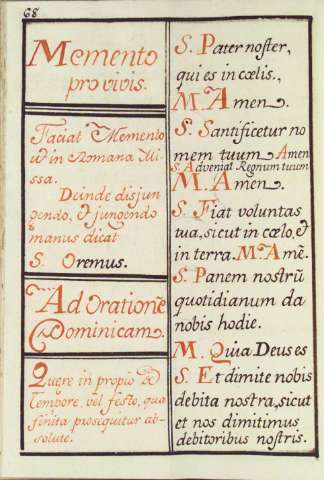 68
Memento
pro vivis.
Faciat Memento
ut in Romana Mi
ssa.
Deinde disjun
gendo, & jungendo
manus dicat
S. Oremus.
Ad Orationẽ
Dominicam.
Quęre in propio de
Tempore, vel festo, qua
finita prosequitur ab-
solute.
S. Pater noster,
qui es in cœlis.,
M. Amen.
S. Santificetur no
mem tuum Amen
S. Adveniat Regnum tuum
M. Amen.
S. Fiat voluntas
tua, sicut in cœlo, &
in terra. M. Amẽ.
S. Panem nostrũ
quotidianum da
nobis hodie.
M. Quia Deus es
S. Et dimite nobis
debita nostra, sicut
et nos dimitimus
debitoribus nostris.